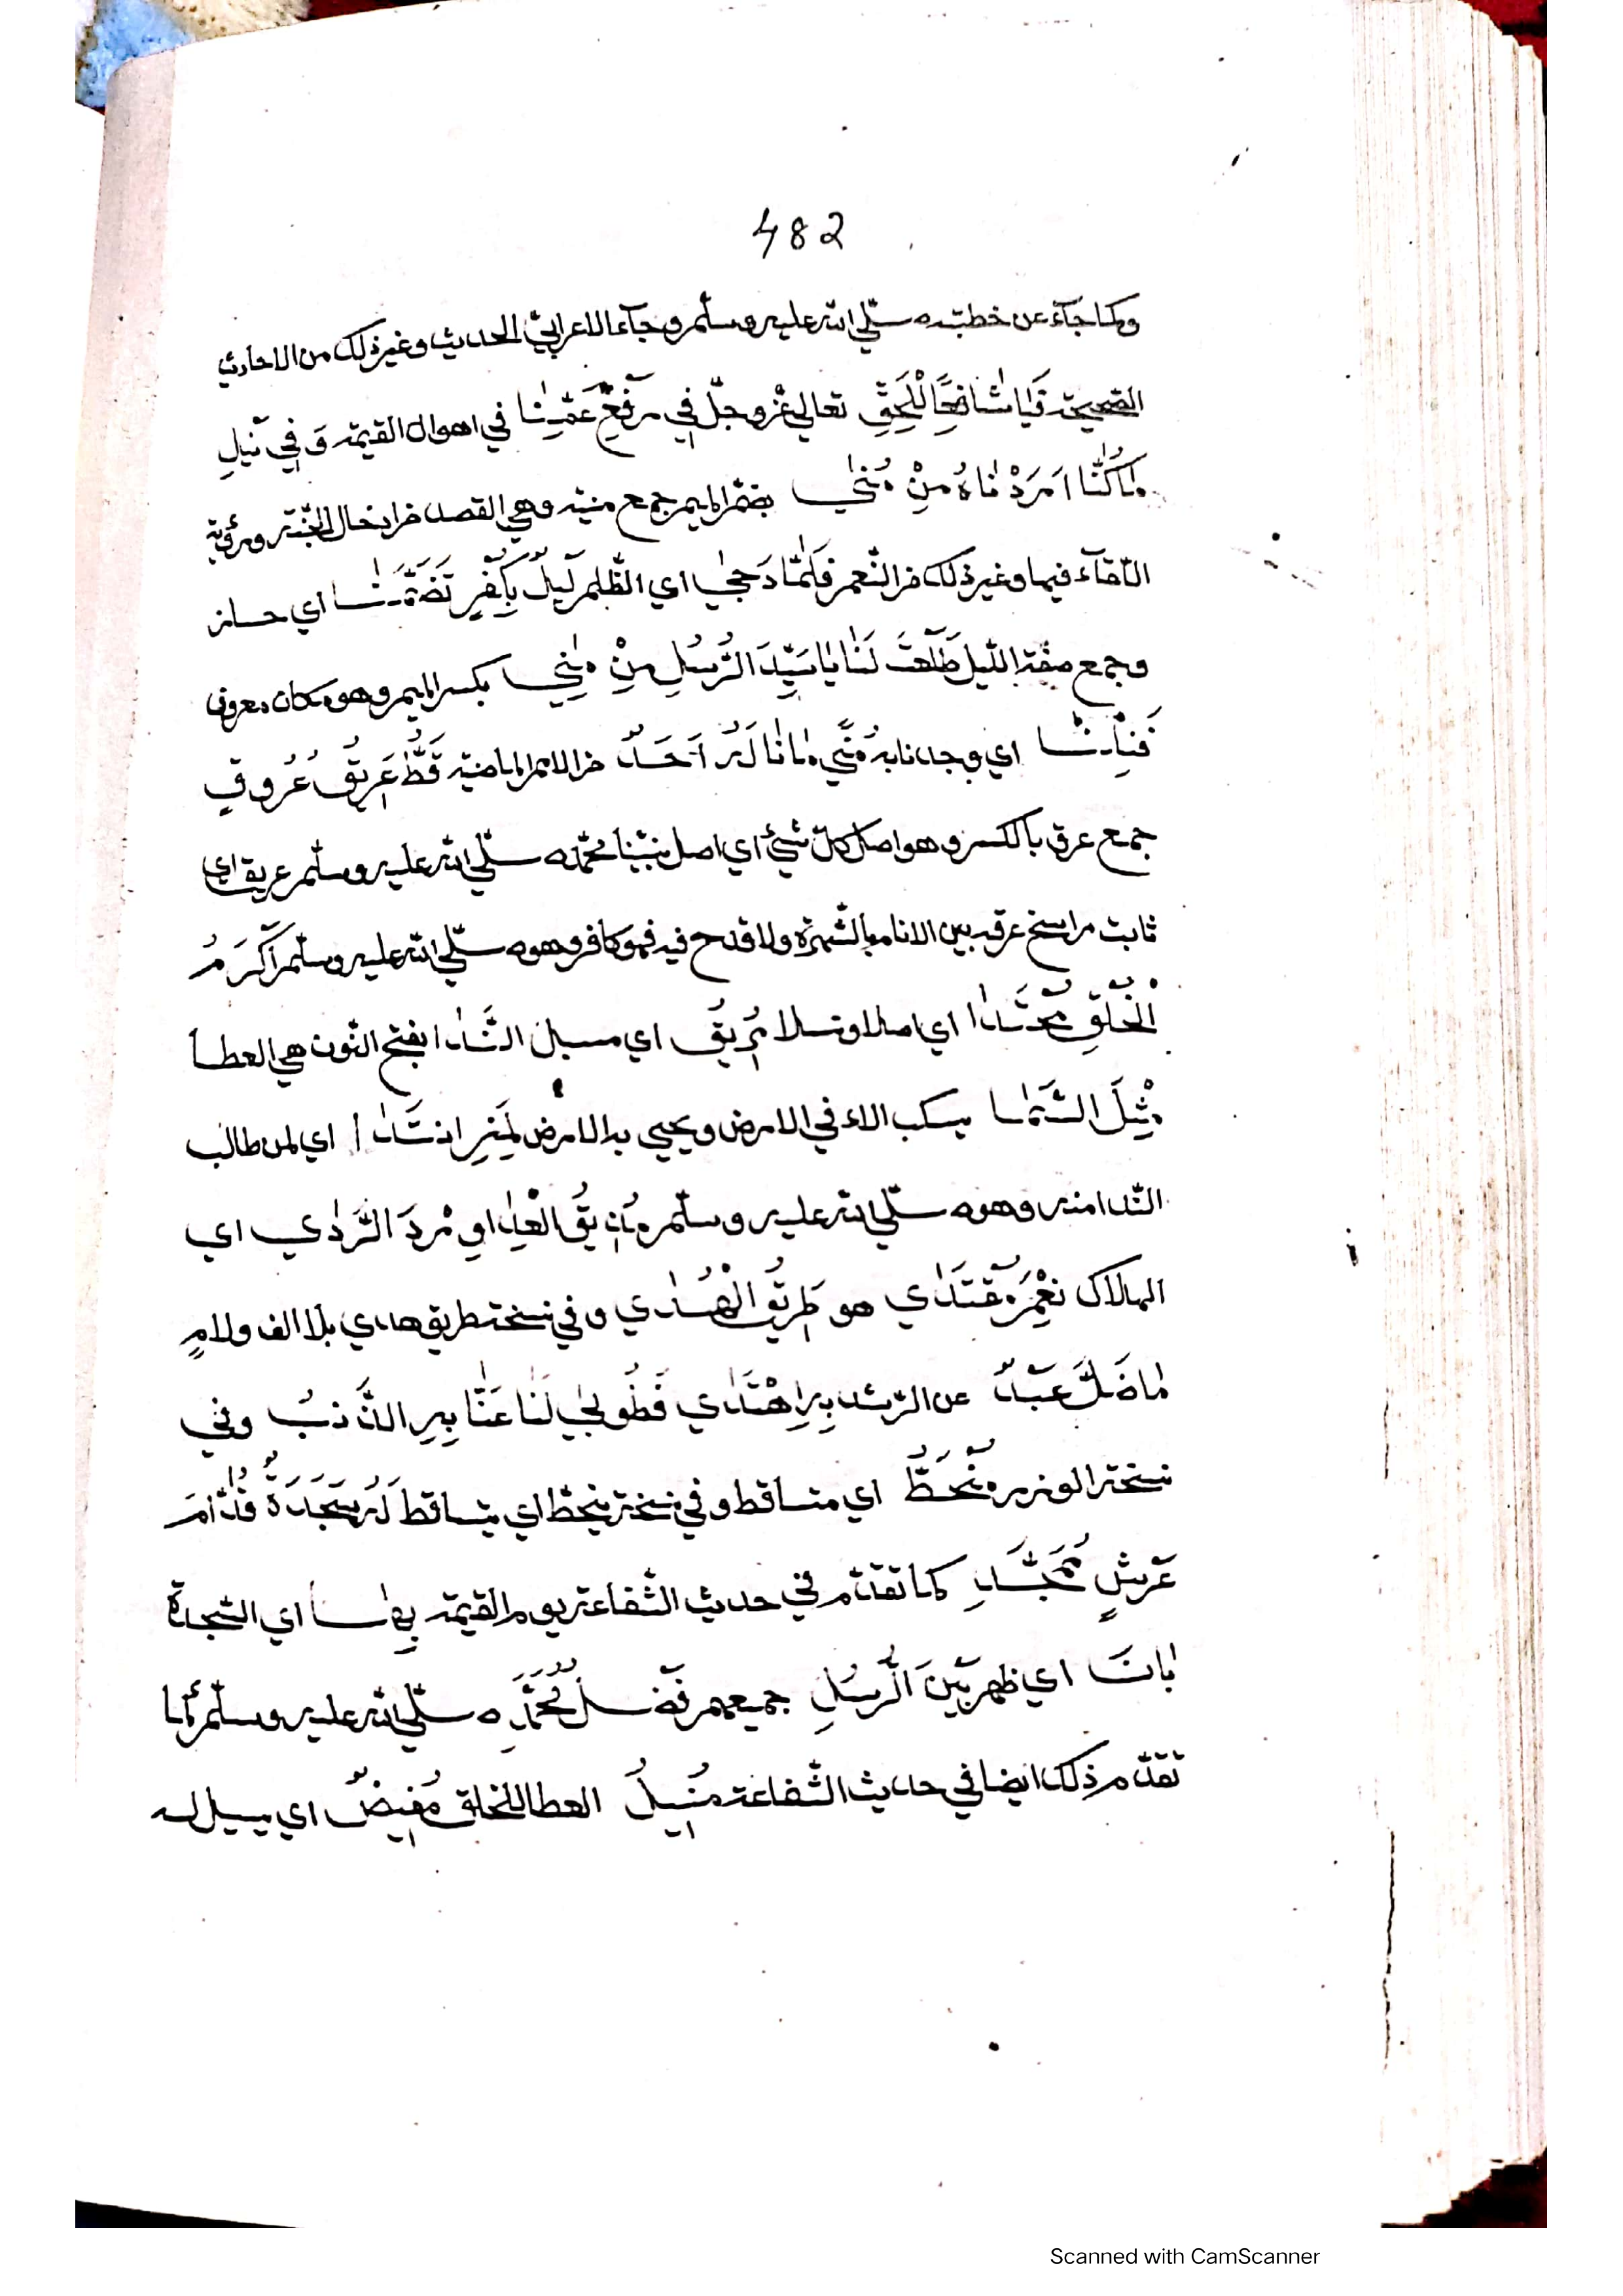 482
وكما جآء عن خطبته ه سلّي الله عليه وسلّم وجآء الاعرابيّ الحديث وغير ذلك من الاحاديث
الصحيحة فَيَا شَافِعًا لِلْحَقِّ تعالي عزّ وجلّ فِي رَفْعِ غَمِّنَا في اهوال القيمة وَفِي نَيلِ
مَا كُنَّا اَرَدْنَاهُ مِنْ مُنَي بضمّ الميم جمع منية وهي القصد من ادخال الجنّة ورؤية
اللّقآء فيها وغير ذلك من النّعم فَلَمَّا دَجَي اي اظلم لَيلٌ بِكُفْرٍ تَضَمَّنَا اي حاز
وجمع صفة اللّيل طَلَعْتَ لَنَا يَا سَيِّدَ الرُّسُلِ مِنْ مِنَي بكسر الميم وهو مكان معروف
فَنِلْنَا اي وجدنا به مُنًي مَا نَالَهُ اَحَدٌ من الامم الماضية قَطُّ عَرِيقُ عُرُوقٍ
جمع عرق بالكسر وهو اصل كلّ شيئ اي اصل نبيّنا محمّد ه سلّي الله عليه وسلّم عريق اي
ثابت راسخ عرقه بين الانام بالشّهرة ولا قدح فيه فهو كافر وهو ه سلّي الله عليه وسلّم اَكْرَمُ
الْخَلْقِ مَحْتَدًا اي اصلا ونسلا مُرِيقُ اي مسيل النَّدَا بفتح النّون هي العطا
مِثْلَ السَّمَا يسكب الماء في الارض ويحيي به الارض لِمَنِ انتَدَا اي لمن طالب
النّدا منه وهو ه سلّي الله عليه وسلّم مُذِيقُ الْعِدَا وِرْدَ الرَّدَي اي
الهلاك نِعْمَ مُقْتَدَي هو طَرِيقُ الْهُدَي وفي نسخة طريق هدي بلا الف ولامٍ
مَا ضَلَّ عَبْدٌ عن الرّشد بِهِ اهْتَدَي فَطُوبَي لَنَا عَنَّا بِهِ الذَّنبُ وفي
نسخة الوزر مُنْحَطٌّ اي متساقط وفي نسخة ينحطّ اي يتساقط لَهُ سَجْدَةٌ قُدَّامَ
عَرْشٍ مُمَجَّدٍ كما تقدّم في حديث الشّفاعة يوم القيمة بِهَا اي السّجدة
بَانَ اي ظهر بَيْنَ الرُّسُلِ جميعهم فَضْلُ مُحَمَّدٍ ه سلّي الله عليه وسلّم كما
تقدّم ذلك ايضا في حديث الشّفاعة مُنِيلُ العطا للخلق مُفِيضٌ اي يسيل له
Scanned with CamScanner